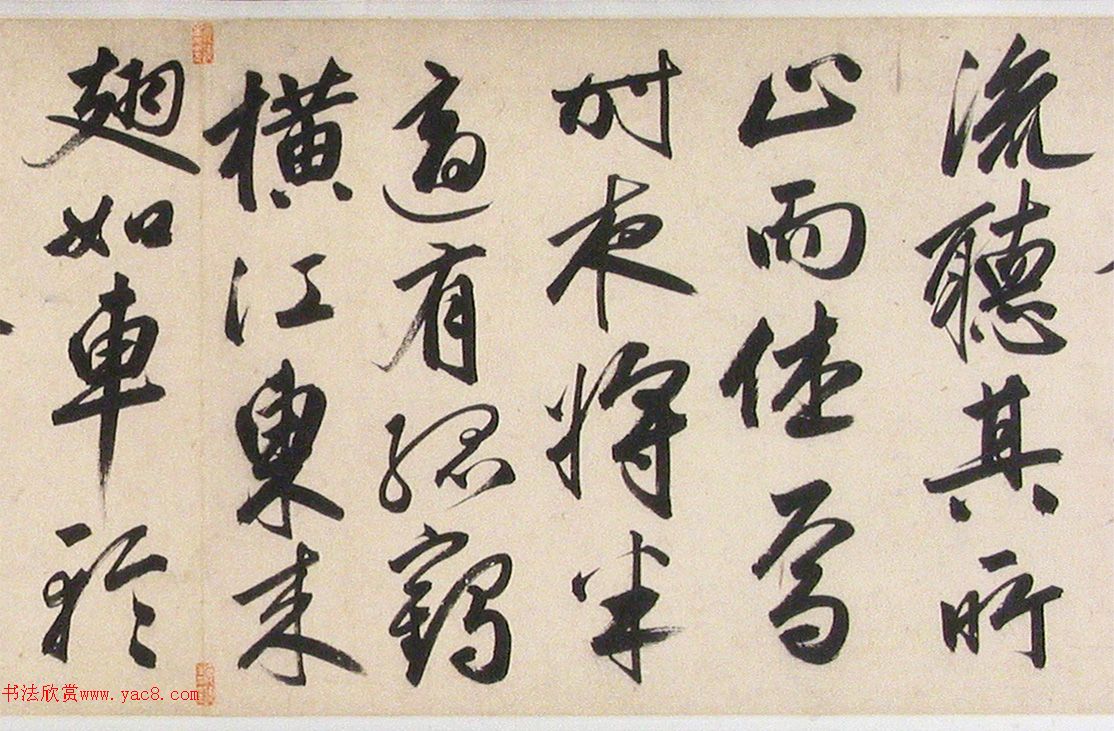 流聽其所
止而休焉
時夜將半
適有孤鶴
橫江東來
翅如車輪
书法欣赏www.yac8.com